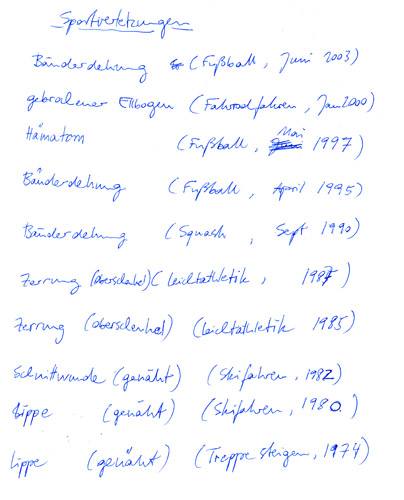 Sportverletzungen
Bänderdehnung (Fußball, Juni 2003)
gebrochener Ellbogen (Fahrradfahren, Jan 2000)
Hämatom (Fußball, Mai 1997)
Bänderdehnung (Fußball, April 1995)
Bänderdehnung (Squash, Sept 1990)
Zerrung (Oberschenkel) (Leichtathletik, 1987)
Zerrung (Oberschenkel) (Leichtathletik 1985)
Schnittwunde (genäht) (Skifahren, 1982)
Lippe (genäht) (Skifahren, 1980)
Lippe (genäht) (Treppe steigen, 1974)